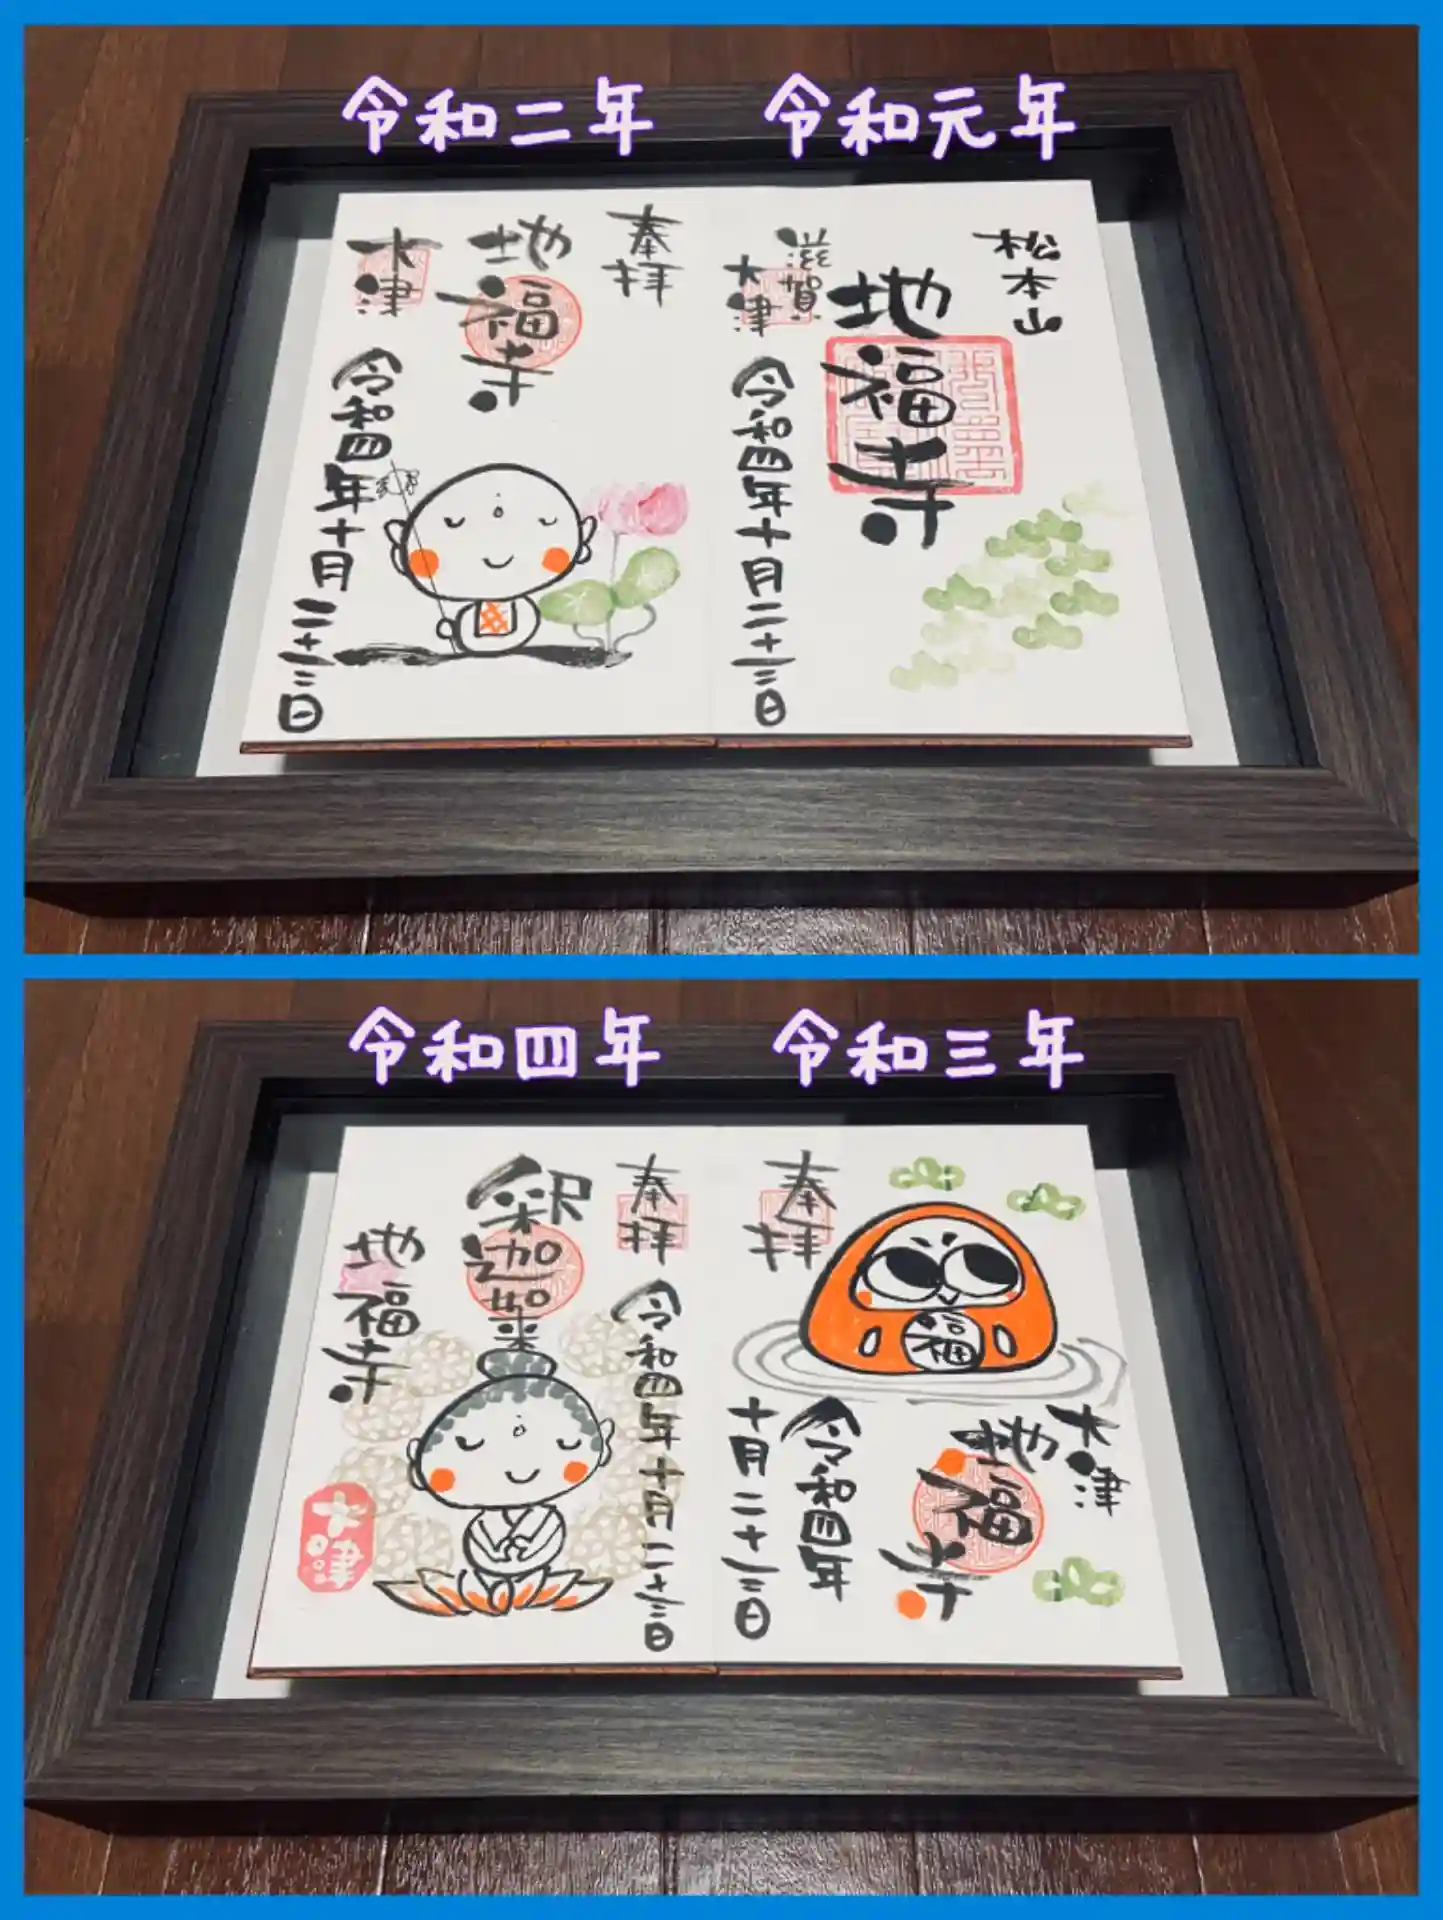 令和元年
松本山
地福寺
滋賀
大津
令和四年十月二十三日
令和二年
奉拝
地福寺
大津
令和四年十月二十三日
令和三年
奉拝
福
大津
地福寺
令和四年
十月二十三日
令和四年
奉拝
令和四年十月二十三日
釈迦如来
地福寺
大津